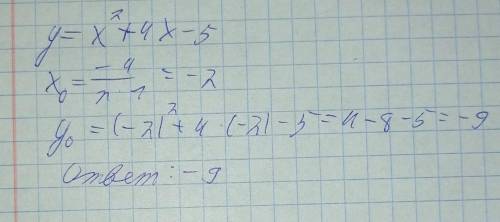 y = x² + 4x - 5
x₀ = -4/2·1 = -2
y₀ = (-2)² + 4·(-2) - 5 = 4 - 8 - 5 = -9
Ответ: -9